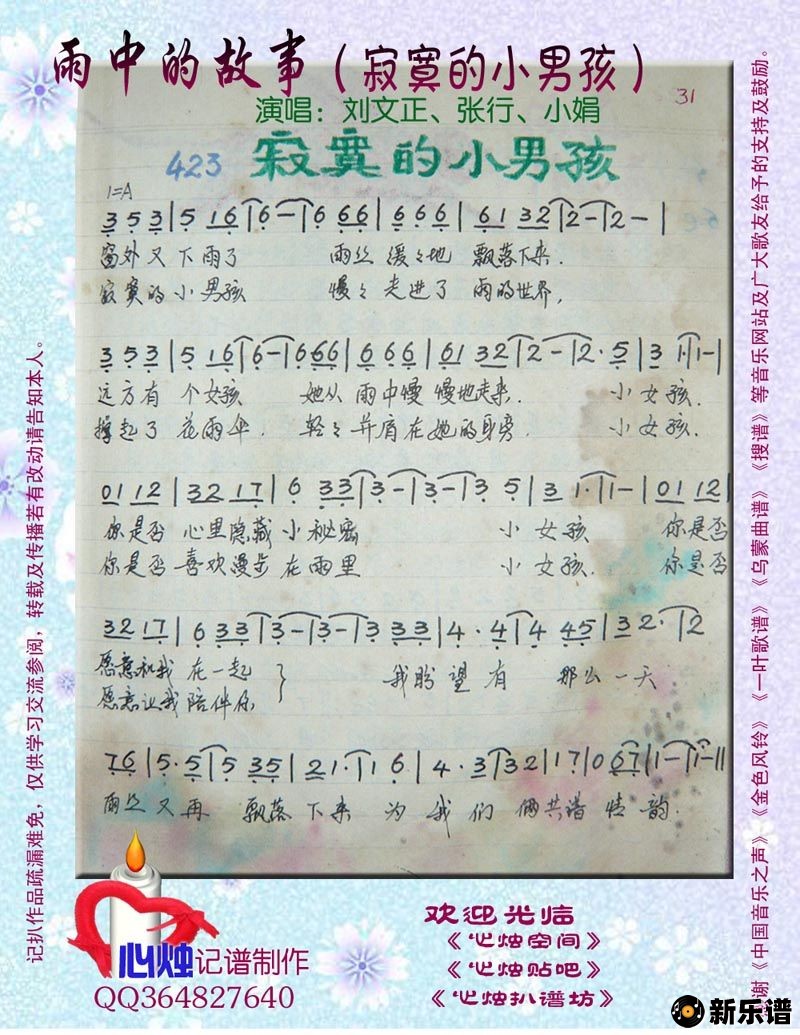 雨中的故事（寂寞的小男孩）
演唱：刘文正、张行、小娟
31
423 寂寞的小男孩
1=A
3 5 3 | 5 16 | 6 — | 6 66 | 6 66 | 61 32 | 2 — | 2 — |
窗外又下雨了 雨丝缓々地 飘落下来.
寂寞的小男孩 慢々走进了 雨的世界,
3 5 3 | 5 16 | 6 — | 6 66 | 6 66 | 61 32 | 2 — | 2 · 5 | 3 1 · | 1 — |
远方有个女孩 她从雨中慢慢地走来. 小女孩.
撑起了花雨伞. 轻々并肩在她的身旁. 小女孩.
01 12 | 32 17 | 6 33 | 3 — | 3 — | 3 5 | 3 1 · | 1 — | 01 12 |
你是否 心里隐藏小秘密 小女孩 你是否
你是否 喜欢漫步在雨里 小女孩. 你是否
32 17 | 6 33 | 3 — | 3 — | 3 33 | 4 · 4 | 4 45 | 32 · | 2
愿意和我在一起 } 我盼望有 那么一天
愿意让我陪伴你
76 | 5 · 5 | 5 35 | 21 · | 1 6 | 4 · 3 | 32 | 17 | 0 67 | 1 — | 1 — ||
雨丝又再 飘落下来 为我们 俩共谱情韵.
记扒作品疏漏难免，仅供学习交流参阅，转载及传播若有改动请告知本人。
谢《中国音乐之声》《金色风铃》《一叶歌谱》《乌蒙曲谱》《搜谱》等音乐网站及广大歌友给予的支持及鼓励。
心烛记谱制作
QQ364827640
欢迎光临
《心烛空间》
《心烛贴吧》
《心烛扒谱坊》
新乐谱